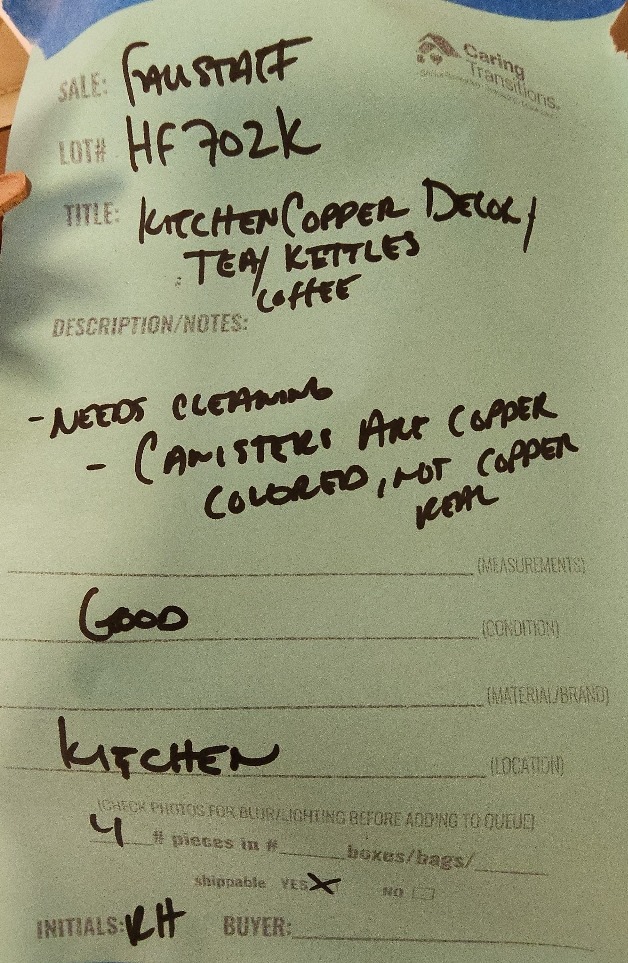 Caring
Transitions
SALE: FALLSTAFF
LOT# HF702K
TITLE: KITCHEN COPPER DECOR/
TEA/ KETTLES
COFFEE
DESCRIPTION/NOTES:
- NEEDS CLEANING
- CANISTERS ARE COPPER
COLORED, NOT COPPER
REAL
(MEASUREMENTS)
GOOD (CONDITION)
(MATERIAL/BRAND)
KITCHEN (LOCATION)
(CHECK PHOTOS FOR BLUR/LIGHTING BEFORE ADDING TO QUEUE)
4 # pieces in # boxes/bags/
shippable YES X NO
INITIALS: RH BUYER: